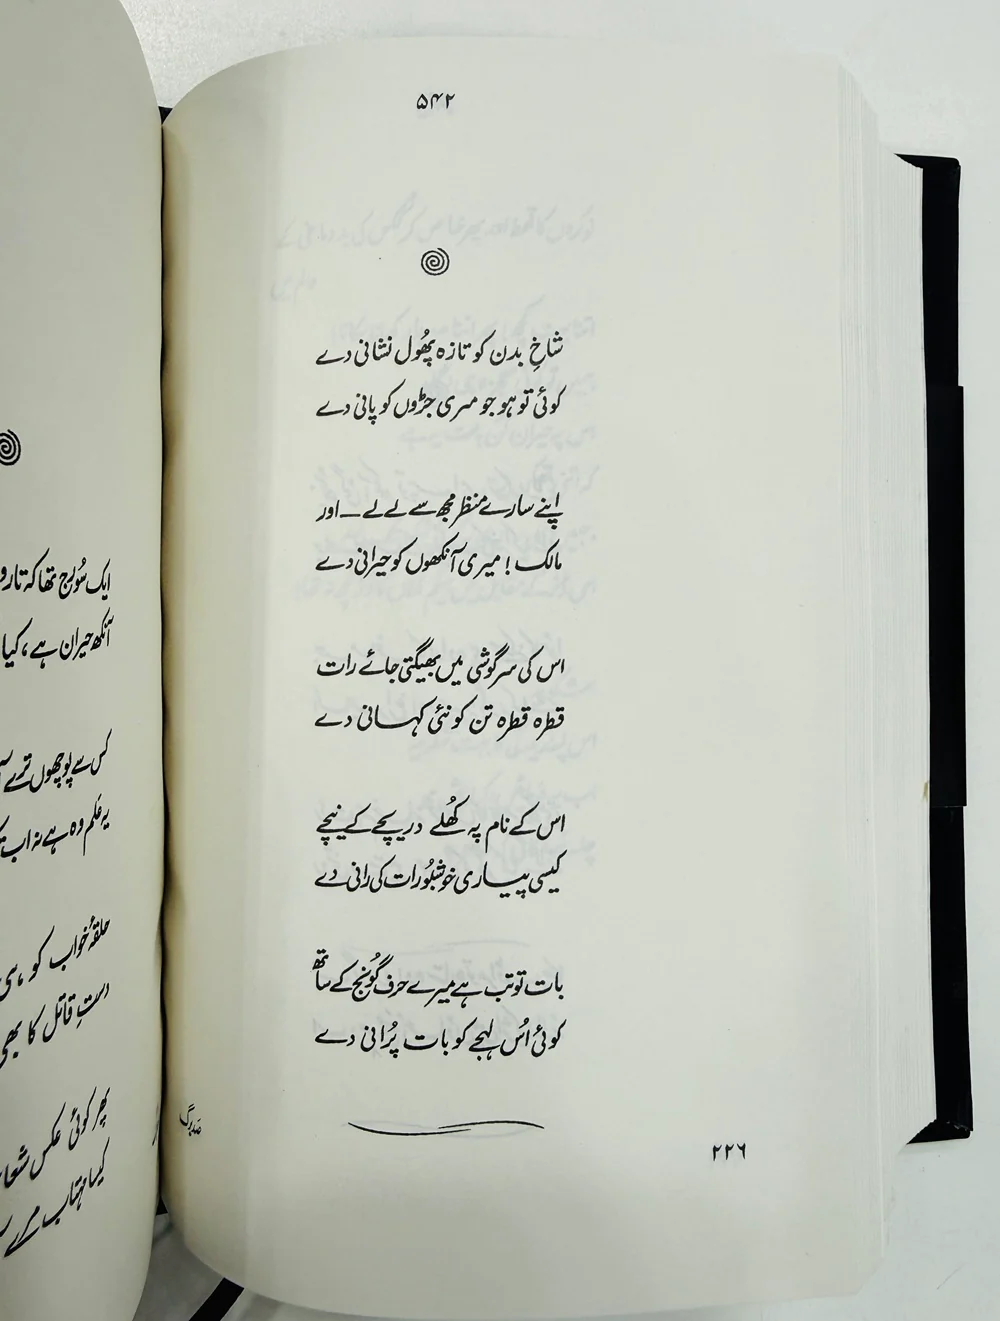 ۵۴۲
شاخِ بدن کو تازہ پھُول نشانی دے
کوئی تو ہو جو مری جڑوں کو پانی دے
اپنے سارے منظر مجھ سے لے لے ــ اور
مالک ! میری آنکھوں کو حیرانی دے
اس کی سرگوشی میں بھیگتی جائے رات
قطرہ قطرہ تن کو نئی کہانی دے
اس کے نام پہ کھُلے دریچے کے نیچے
کیسی پیاری خوشبُو رات کی رانی دے
بات تو تب ہے میرے حرف گُونج کے ساتھ
کوئی اُس لہجے کو بات پُرانی دے
صد برگ
۲۲۶
ایک سُورج تھا کہ تارو
آنکھ حیران ہے، کیا
کس سے پوچھوں ترے
یہ علم وہ ہے نہ اب
حلقۂ خواب کو ہی
دستِ قاتل کا بھی
پھر کوئی عکس شعا
کیسا مہتاب مرے